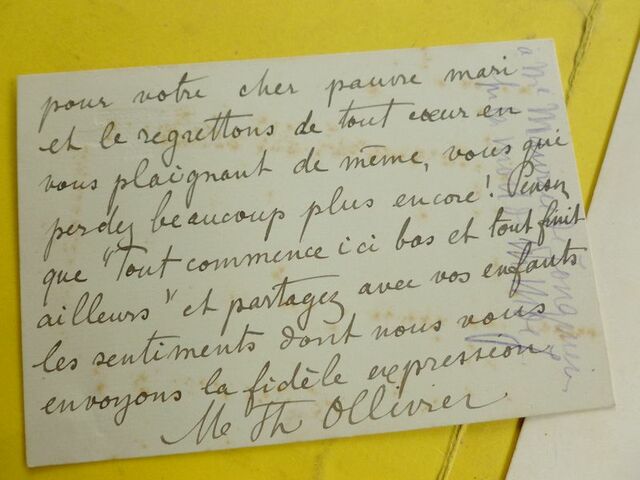 pour votre cher pauvre mari
et le regrettons de tout cœur en
vous plaignant de même, vous qui
perdez beaucoup plus encore! Pensez
que "Tout commence ici bas et tout finit
ailleurs" et partagez avec vos enfants
les sentiments dont nous vous
envoyons la fidèle expression
M Th Ollivier
à Me Maurice